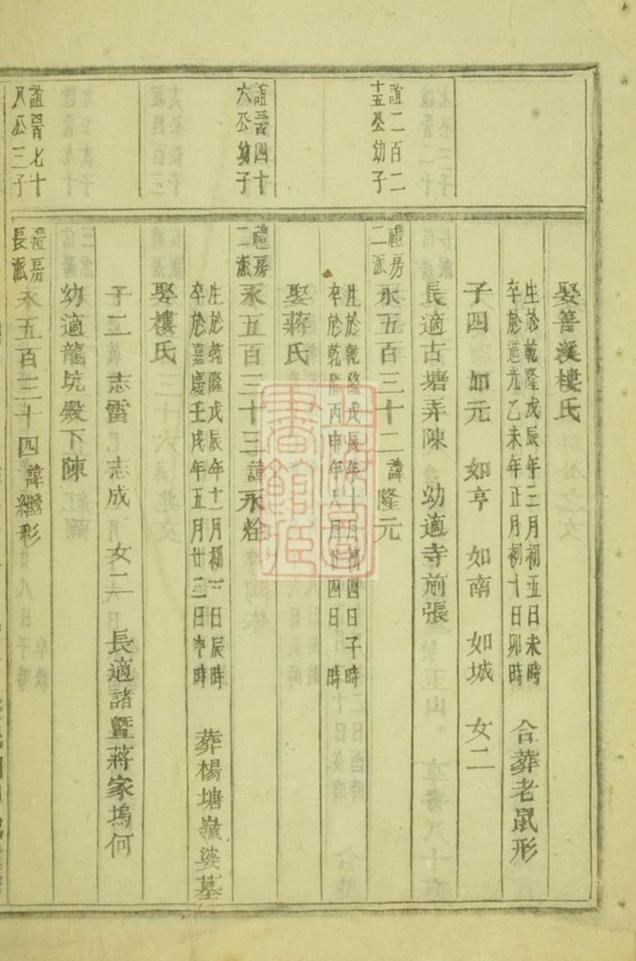 娶善溪樓氏
生於乾隆戊辰年三月初五日未時
卒於道光乙未年正月初十日卯時
合葬老鼠形
子四 如元 如亨 如南 如城 女二
長適古塘弄陳 幼適寺前張
誼二百二
十五公幼子
禮房
二派
永五百三十二諱隆元
生於乾隆戊辰年十月初四日子時
卒於乾隆丙申年八月廿四日 時
娶蔣氏
誼晉四十
六公幼子
禮房
二派
永五百三十三諱永銓
生於乾隆戊辰年十二月初 日辰時
卒於嘉慶壬戌年五月廿三日申時
葬楊塘嶺婆墓
娶樓氏
子二 志雷 志成 女二 長適諸暨蔣家塢何
幼適龍坑殿下陳
誼晉七十
八公三子
禮房
長派
永五百三十四諱繼形